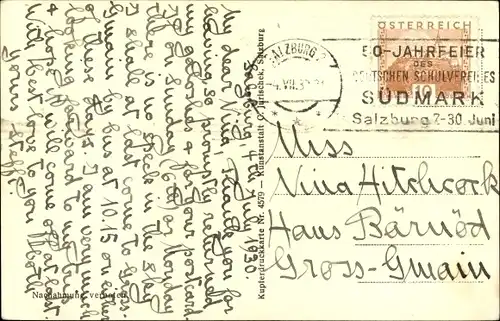 Salzburg, 4th July 1930.
My dear Nina, Thank you for
having so promptly returned
the goloshes & for your postcard.
On Sunday (6th) or Monday
there is no speck in the sky
I hope at last come to Gross-
Gmain by bus at 10.15 on either
of these days. I am very much
looking forward to my bus
& hope it will come off at last.
With best love to you both
Yours Steffi.
Nachahmung verboten
Kupferdruckkarte Nr. 4579 — Kunstanstalt C. Jurischek, Salzburg
SALZBURG 2
4. VII. 3
ÖSTERREICH
10
50-JAHRFEIER
DES
DEUTSCHEN SCHULVEREINES
SÜDMARK
Salzburg 7-30 Juni
Miss
Nina Hitchcock
Haus Bärnöd
Gross-Gmain